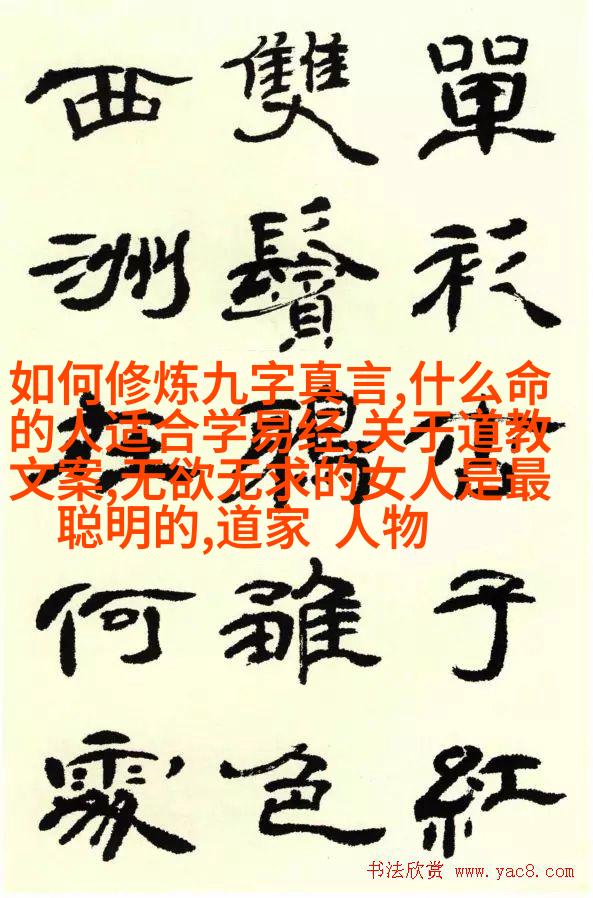 單衫杏子紅
雙鬢鴉雛色
西洲在何處
如何修炼九字真言,什么命
的人适合学易经,关于道教
文案,无欲无求的女人是最
聪明的,道家 人物
书法欣赏 www.yac8.com